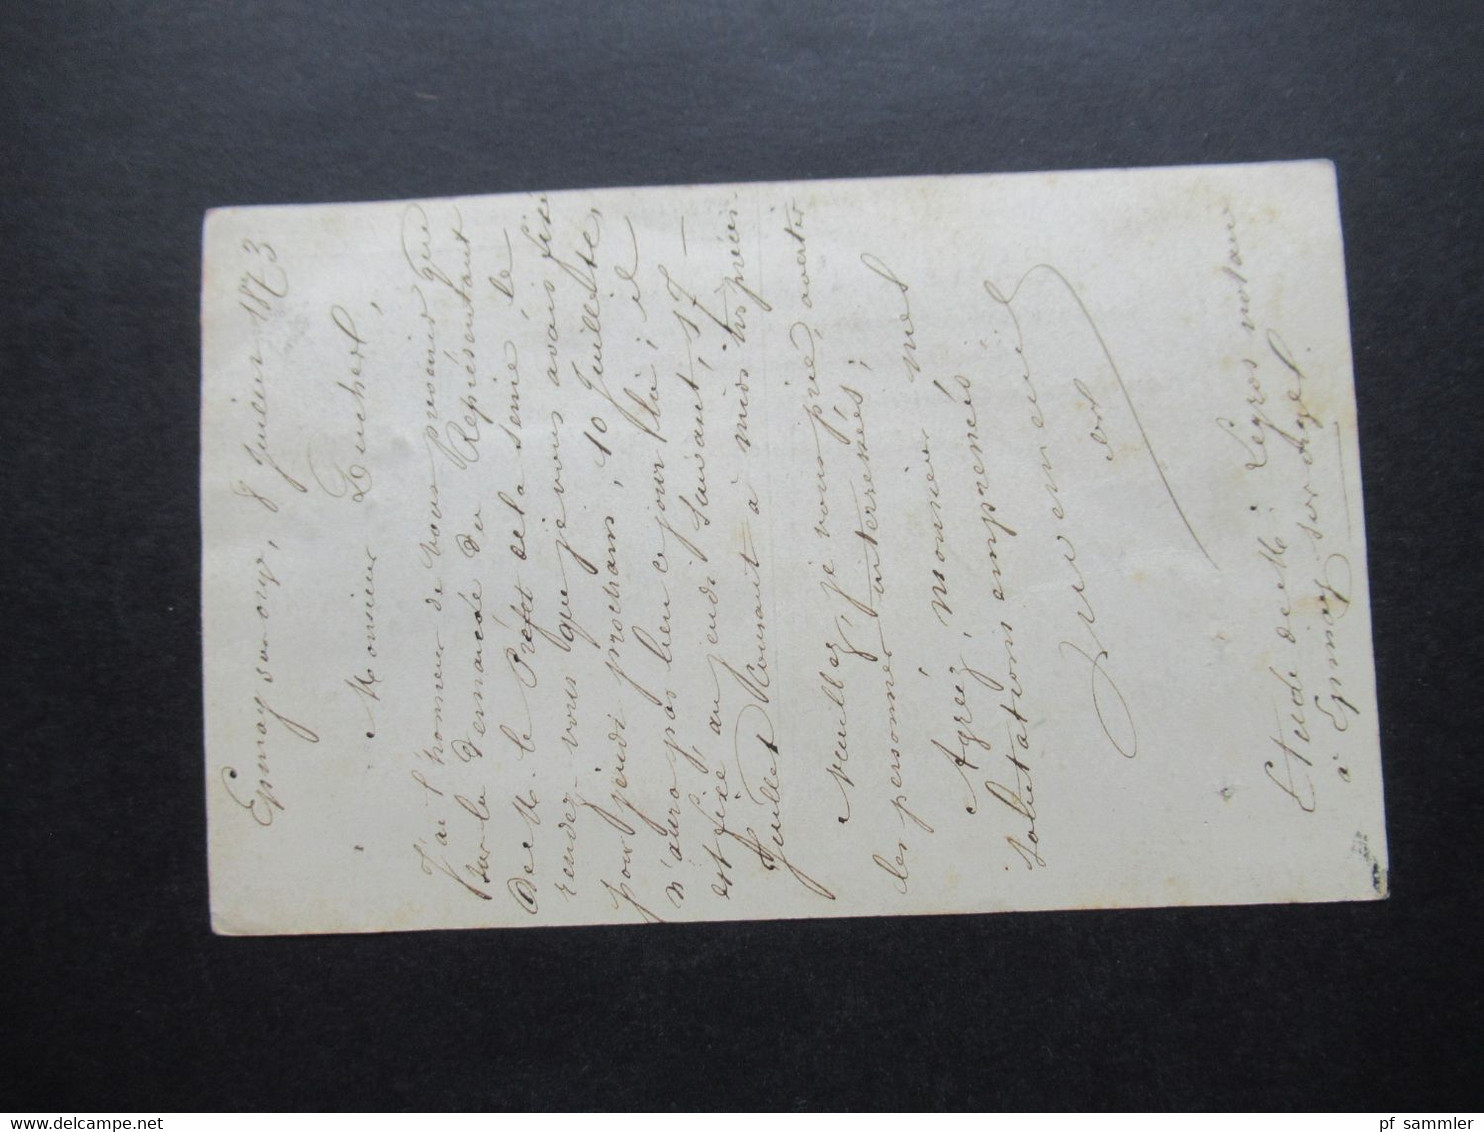 Epinay sur orge, 8 Juillet 1873
Monsieur Duchert,
J'ai l'honneur de vous prévenir que
sur la demande du Représentant
de M. le Préfet de la Seine le
rendez-vous que je vous avais fixé
pour jeudi prochain, 10 Juillette,
n'aura pas lieu ce jour là; il
est fixé au jeudi suivant, 17 —
Juillet Courant à midi très précis.
Veuillez, je vous prie, avertir
les personnes interressées;
Agréez, Monsieur, mes
salutations empressées
Etude de Me Legros notaire
à Epinay sur Orge.
www.delcampe.net
pf_sammler